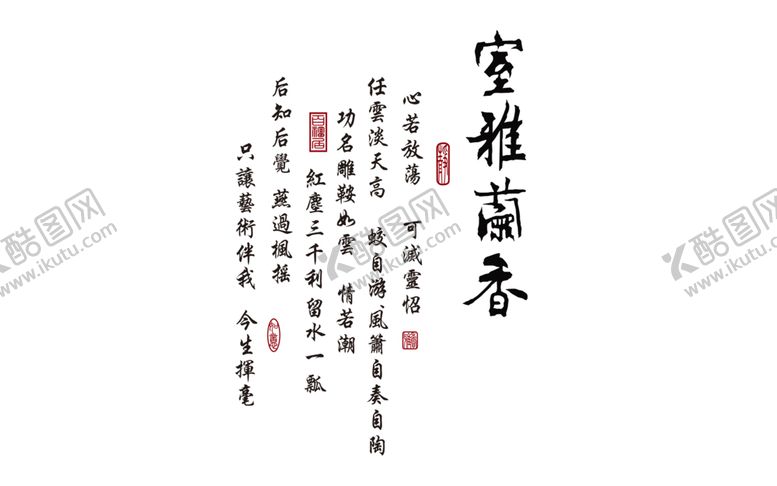 室雅蘭香
心若放蕩 可滅靈怊
任雲淡天高 蛟自游風簫自奏自陶
功名雕鞍如雲 情若潮
百福居
紅塵三千利留水一瓢
后知后覺 燕過楓摇
如意
只讓藝術伴我 今生揮毫
酷图网
www.ikutu.com
酷图网
www.ikutu.com
酷图网
www.ikutu.com